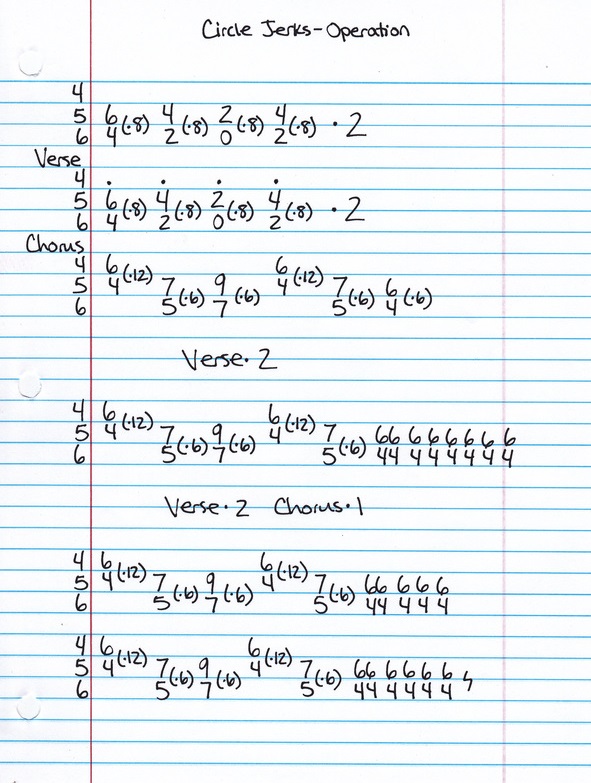 Circle Jerks-Operation
4
5 6 (·8) 4 (·8) 2 (·8) 4 (·8) · 2
6 4 2 0 2
Verse
4 · · · ·
5 6 (·8) 4 (·8) 2 (·8) 4 (·8) · 2
6 4 2 0 2
Chorus
4 6 (·12) 6 (·12)
5 4 7 (·6) 9 (·6) 4 7 (·6) 6 (·6)
6 5 7 5 4
Verse · 2
4 6 (·12) 6 (·12)
5 4 7 (·6) 9 (·6) 4 7 (·6) 66 6 6 6 6 6 6
6 5 7 5 44 4 4 4 4 4 4
Verse · 2 Chorus · 1
4 6 (·12) 6 (·12)
5 4 7 (·6) 9 (·6) 4 7 (·6) 66 6 6 6
6 5 7 5 44 4 4 4
4 6 (·12) 6 (·12)
5 4 7 (·6) 9 (·6) 4 7 (·6) 66 6 6 6 6
6 5 7 5 44 4 4 4 4